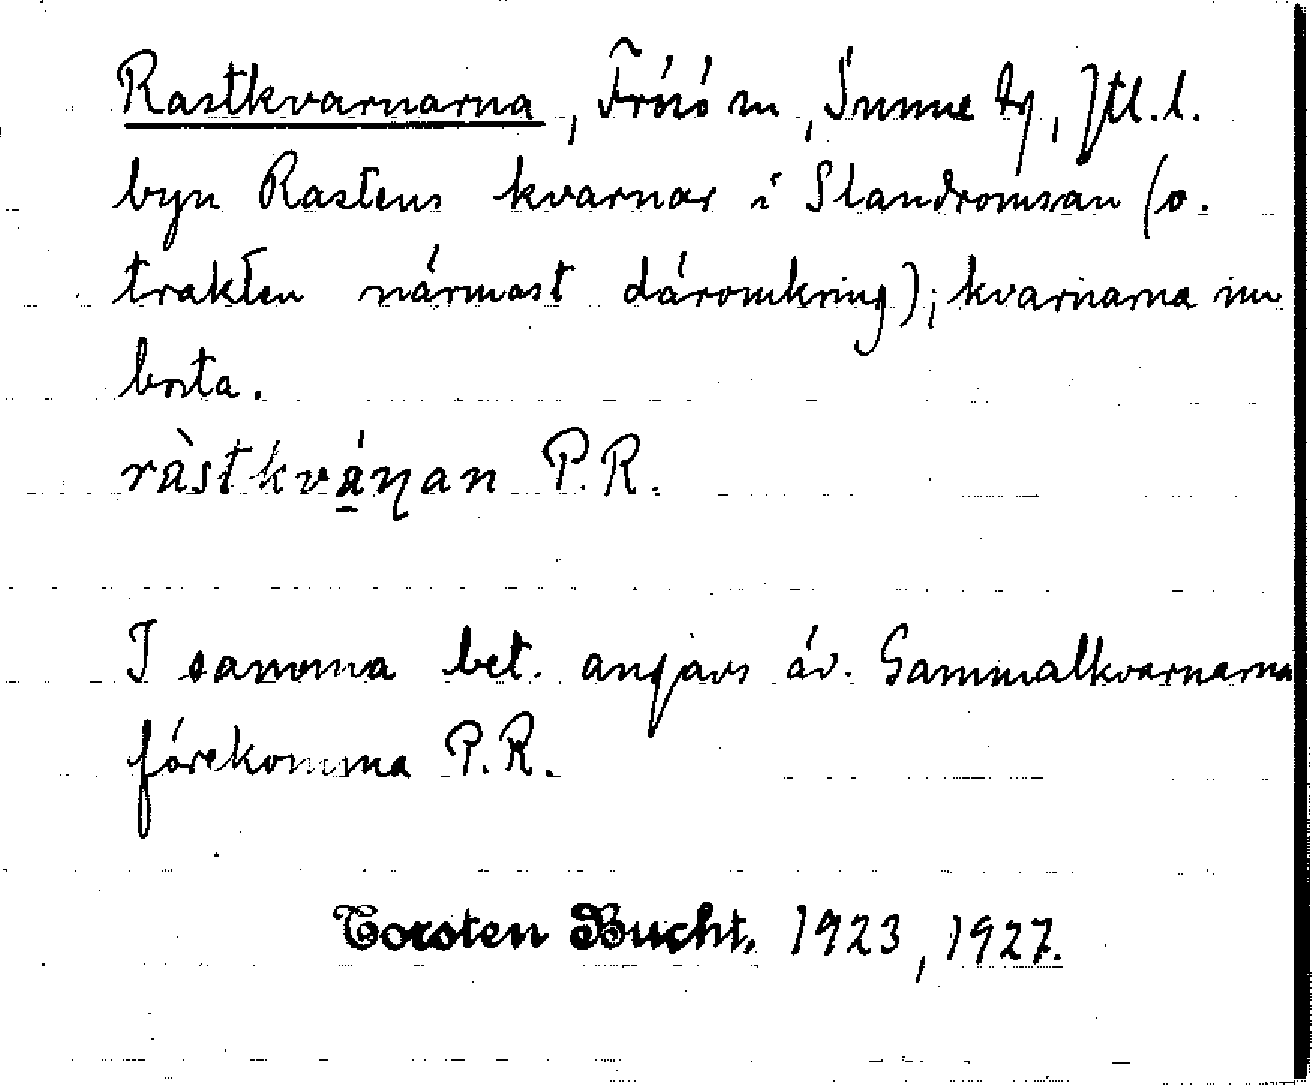 Rastkvarnarna, Frösö sn, Sunne tg, Jtl. l.
byn Rastens kvarnar i Slandromsån (o.
trakten närmast däromkring); kvarnarna nu
borta.
ràstkvá̱ŋan P.R.
I samma bet. angavs äv. Gammalkvarnarna
förekomma P.R.
Torsten Bucht. 1923, 1927.